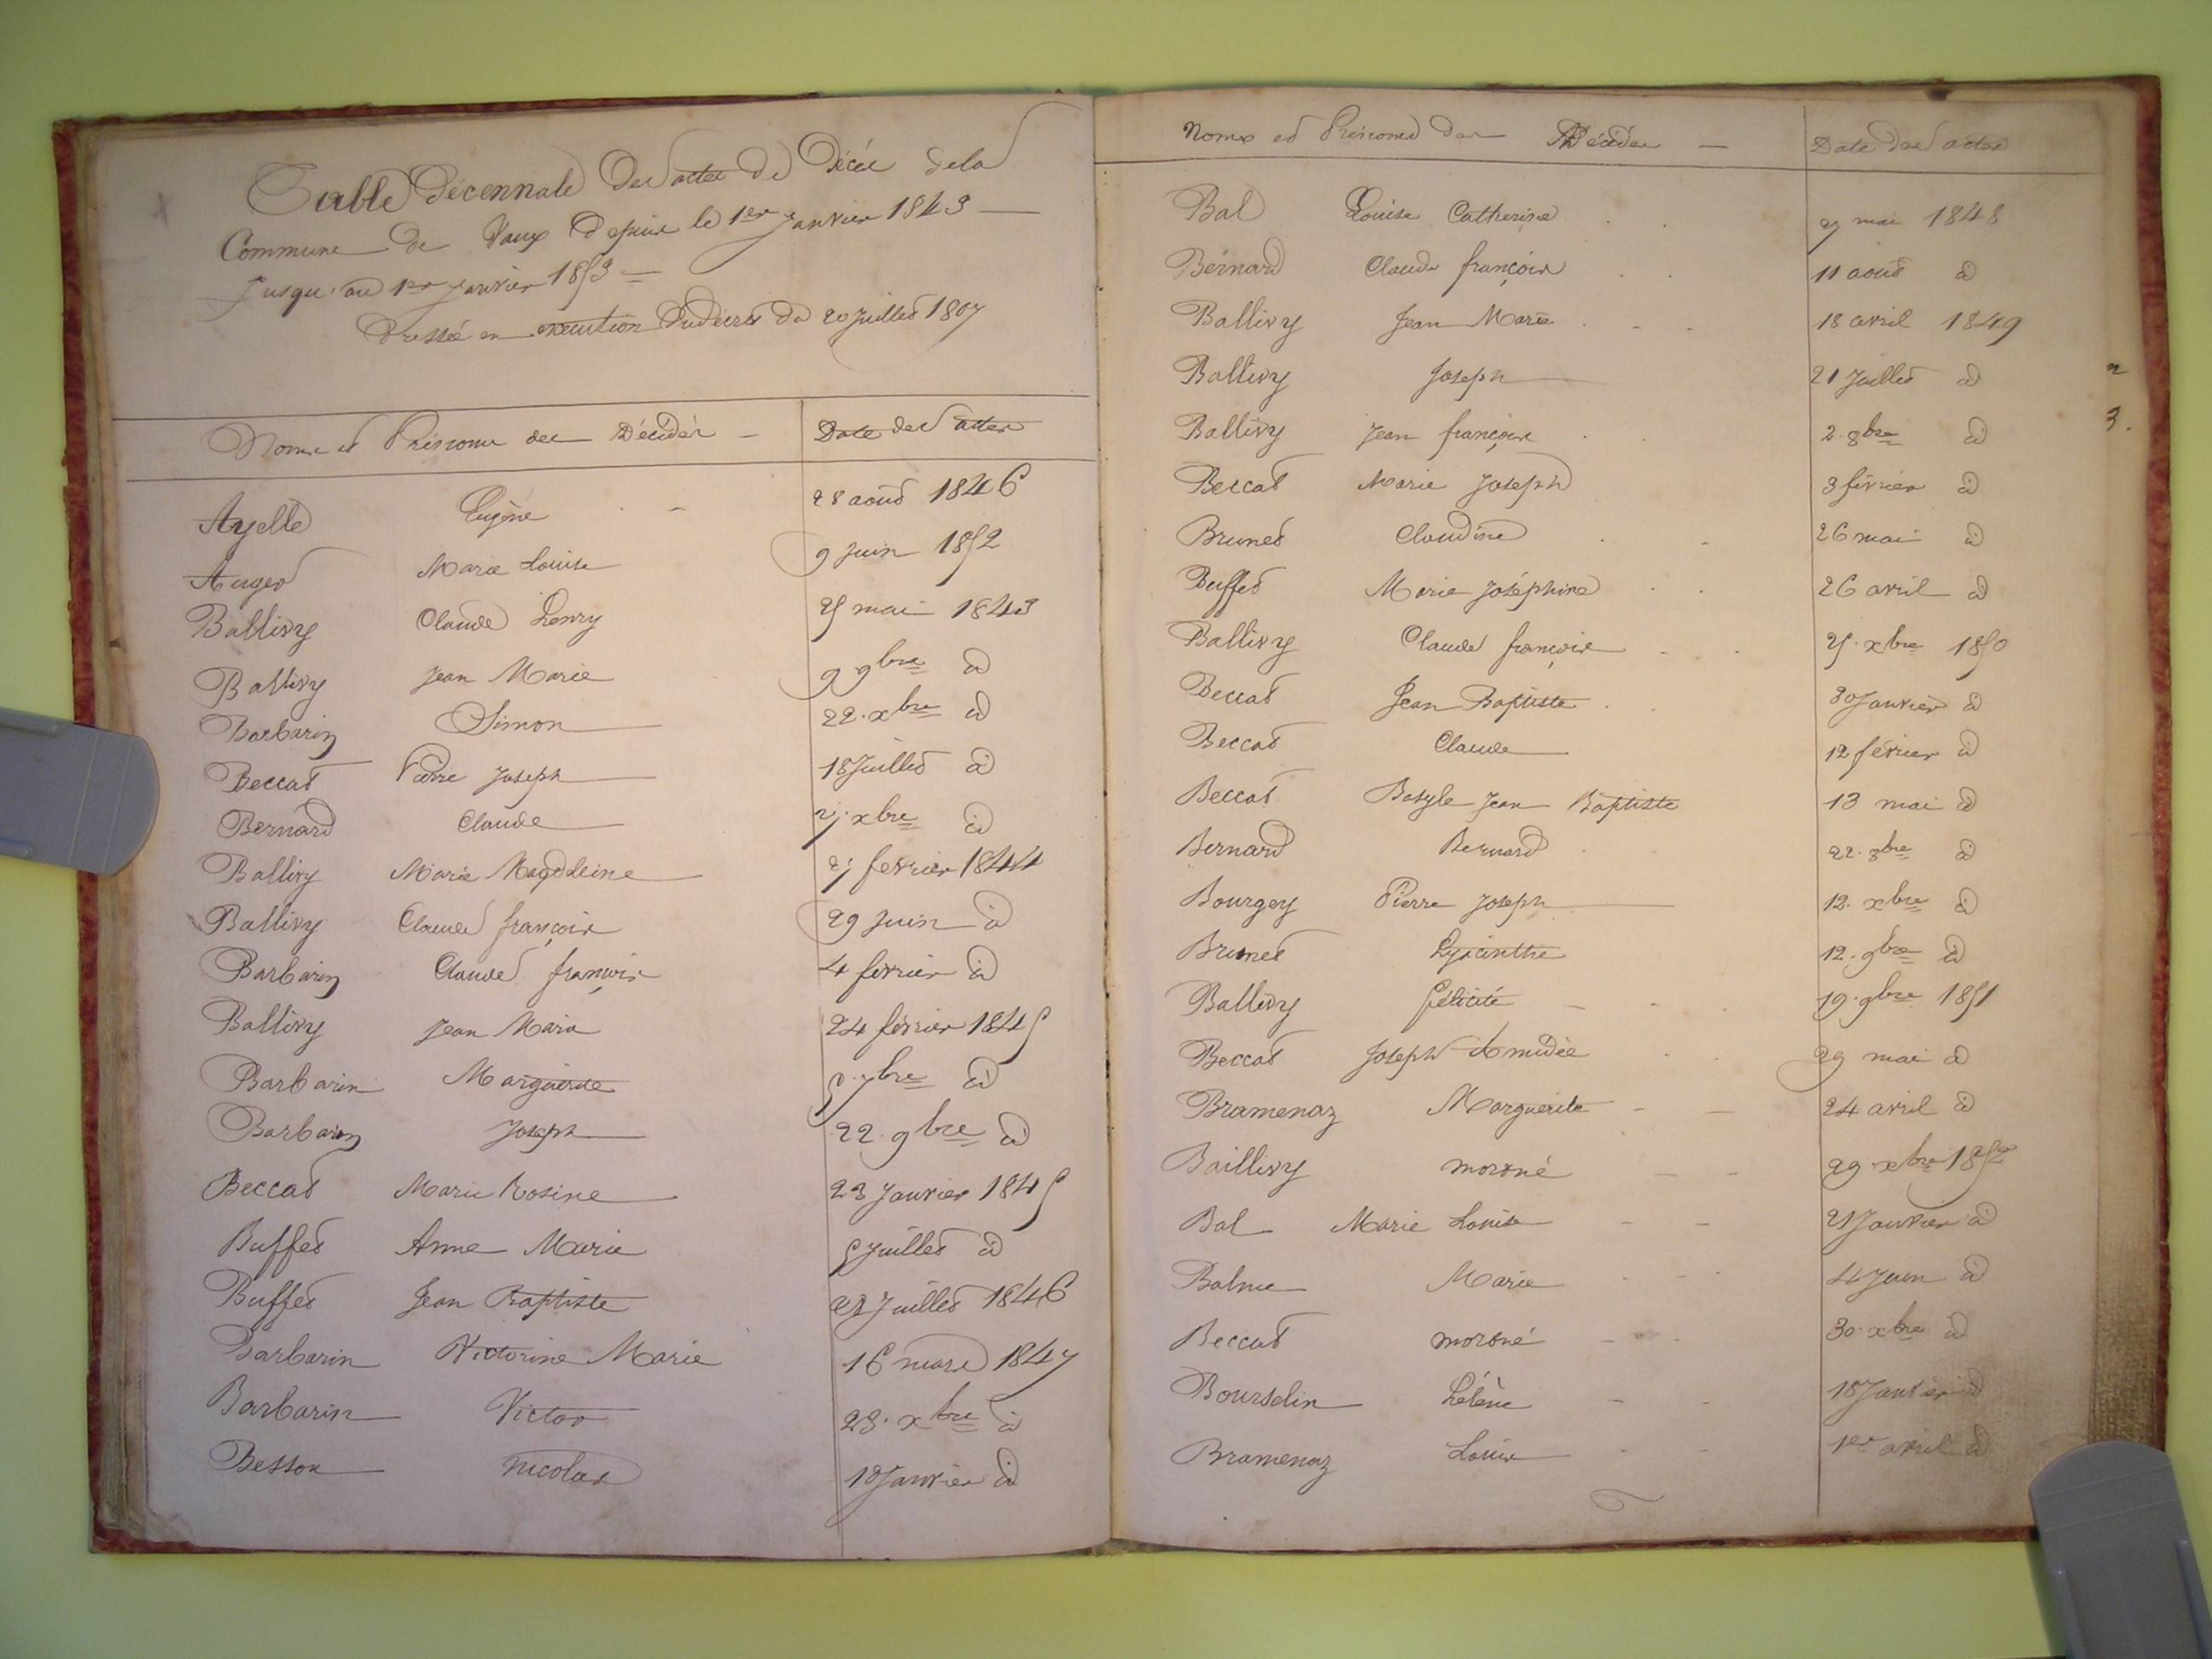 Table Décennale des actes de Décès de la
Commune de Vaux Depuis le 1er Janvier 1843
Jusqu'au 1er Janvier 1853
Dressée en exécution du décret du 20 Juillet 1807
Noms et Prénoms des Décédés — Date des actes
Ayelle Eugène 28 août 1846
Auger Marie Louise 9 Juin 1852
Ballivy Claude henry 25 mai 1843
Ballivy Jean Marie 9 9bre d
Barbarin Simon 22 xbre d
Beccat Pierre Joseph 18 Juillet d
Bernard Claude xbre d
Ballivy Marie Magdeleine février 1844
Ballivy Claude françois 29 Juin d
Barbarin Claude françois 4 février d
Ballivy Jean Marie 24 février 1845
Barbarin Marguerite 5 7bre d
Barbarin Joseph 22 9bre d
Beccat Marie Rosine 23 Janvier 1845
Buffet Anne Marie 5 Juillet d
Buffet Jean Baptiste 22 Juillet 1846
Barbarin Victorine Marie 16 mars 1847
Barbarin Victor 23 xbre d
Besson nicolas 18 Janvier d
Noms et Prénoms des Décédés — Date des actes
Bal Louise Catherine mai 1848
Bernard Claude françois 11 août d
Ballivy Jean Marie 18 avril 1849
Ballivy Joseph 21 Juillet d
2
Ballivy Jean françois 2 8bre d
3.
Beccat Marie Joseph 3 février d
Brunet Claudine 26 mai d
Buffet Marie Joséphine 26 avril d
Ballivy Claude françois 25 xbre 1850
Beccat Jean Baptiste 30 Janvier d
Beccat Claude 12 février d
Beccat Basyle Jean Baptiste 13 mai d
Bernard Bernard 22 8bre d
Bourgey Pierre Joseph 12 xbre d
Brunet hyacinthe 12 9bre d
Ballivy félicité 19 9bre 1851
Beccat Joseph Amédée 29 mai d
Bramenaz Marguerite 24 avril d
Baillivy morné 29 xbre 1852
Bal Marie Louise 21 Janvier d
Balme Marie 4 Juin d
Beccat morné 30 xbre d
Bourselin hélène 18 Janvier d
Bramenaz Louis 1er avril d